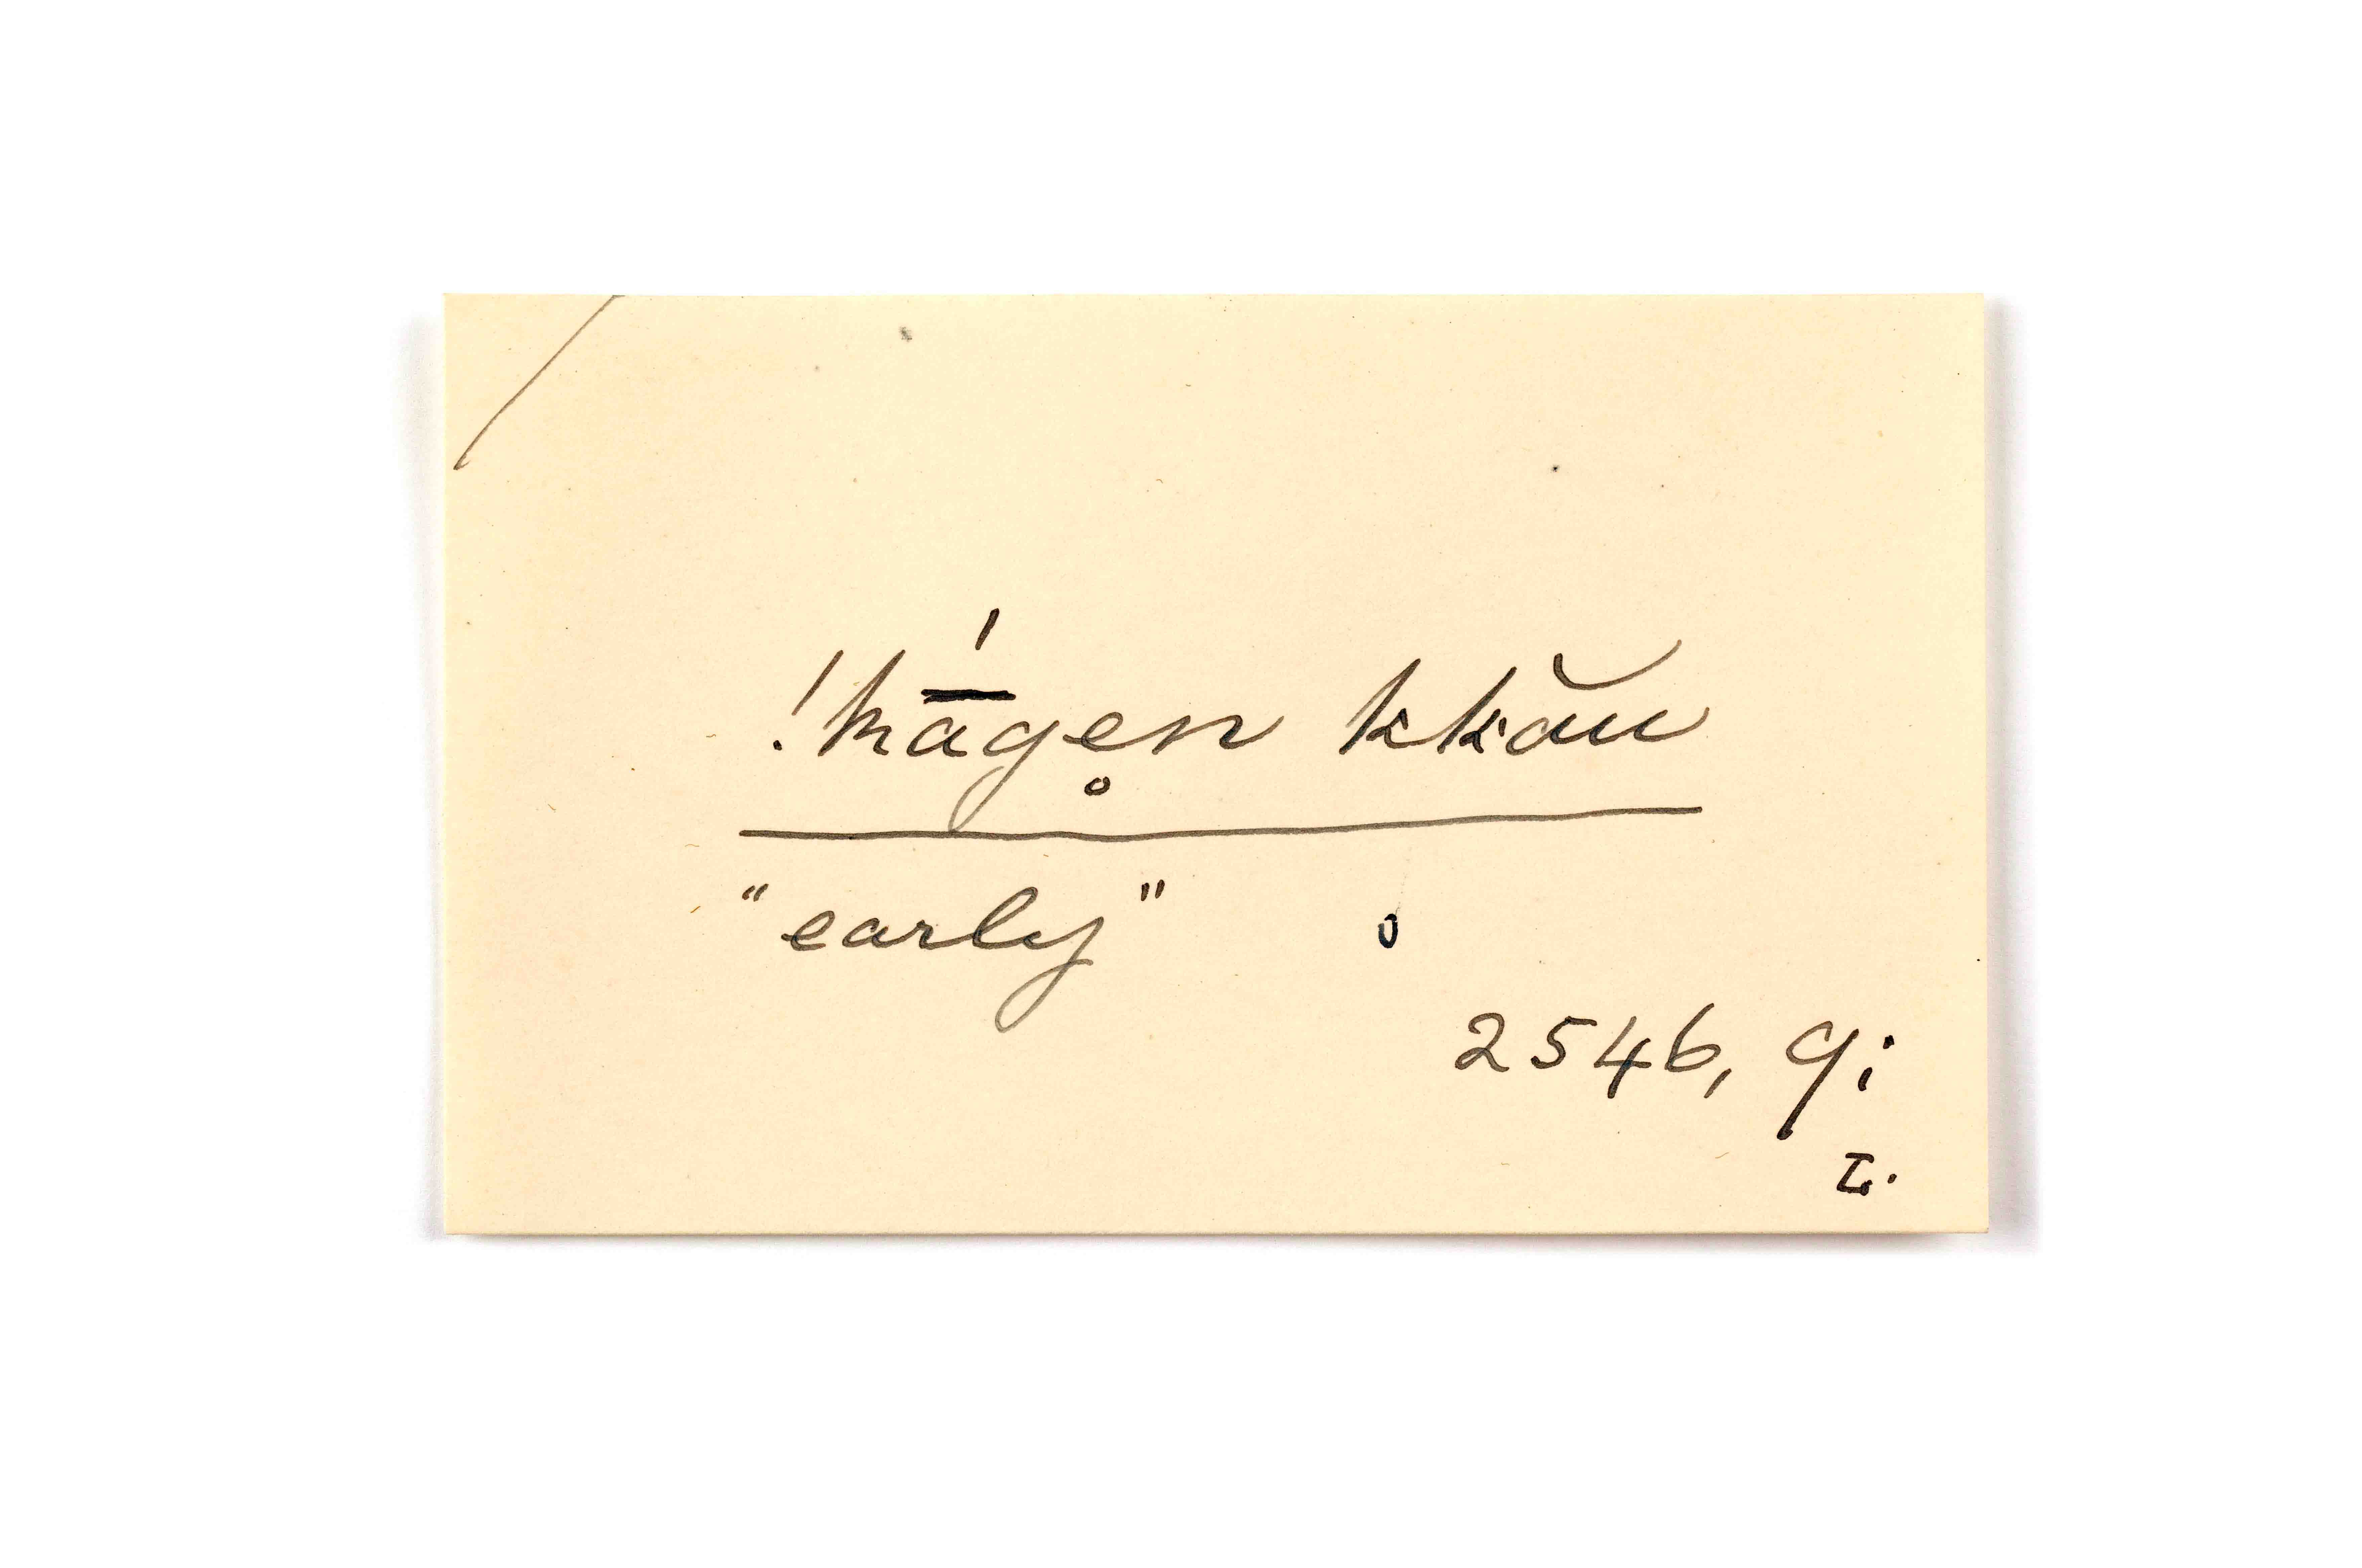 !hā́ge̥n kkău
"early"
2546, 9;
L.